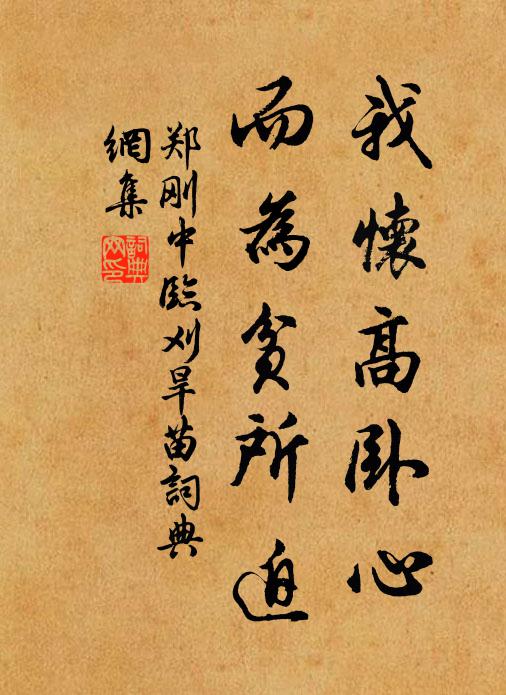 我懷高臥心
而為貧所迫
郑刚中臨刈旱苗詞典
網集
詞典網印